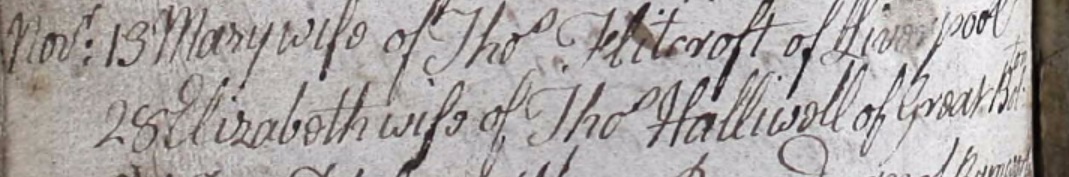 Nov.r 13 Mary wife of Tho.s Flitcroft of Liverpool
28 Elizabeth wife of Tho.s Halliwell of Great